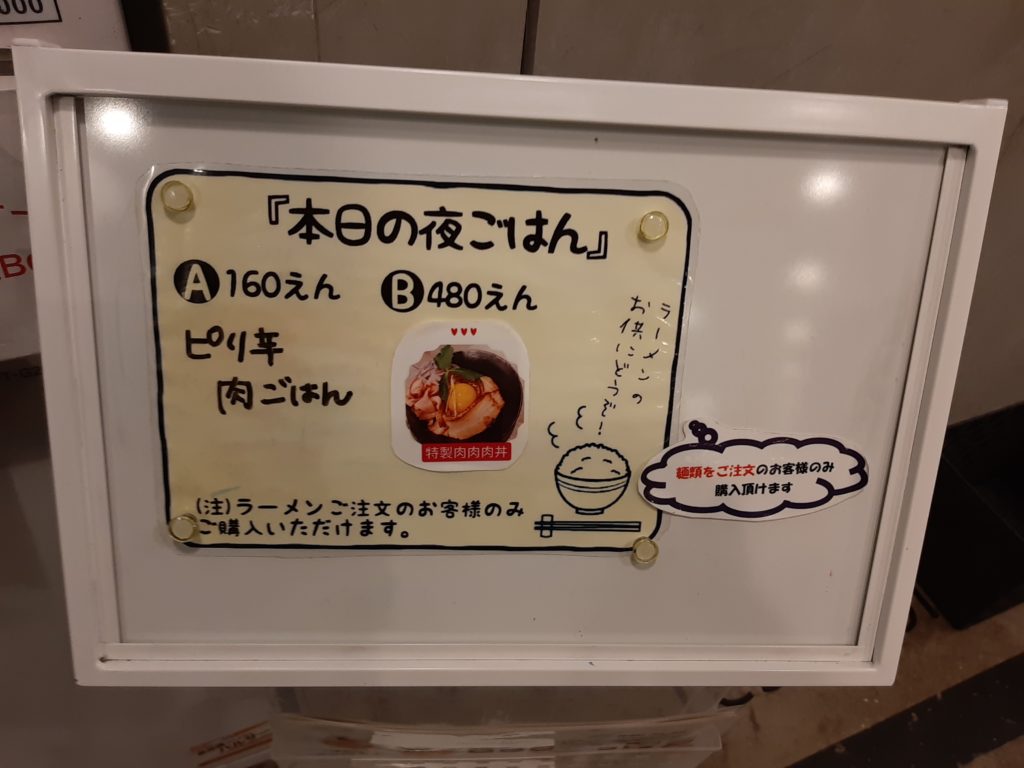 『本日の夜ごはん』
A 160えん
B 480えん
ピリ辛
肉ごはん
特製肉肉肉丼
ラーメンの
お供にどうぞ!
(注)ラーメンご注文のお客様のみ
ご購入いただけます。
麺類をご注文のお客様のみ
購入頂けます